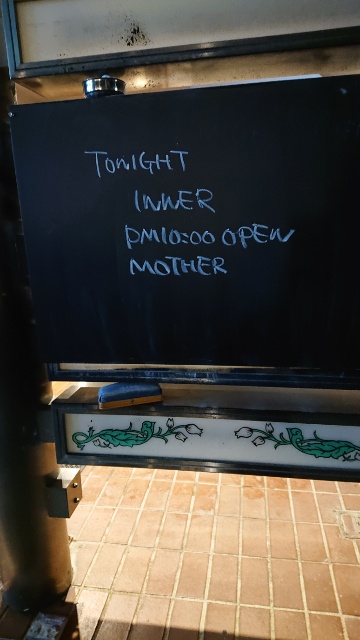 TONIGHT
INNER
PM10:00 OPEN
MOTHER